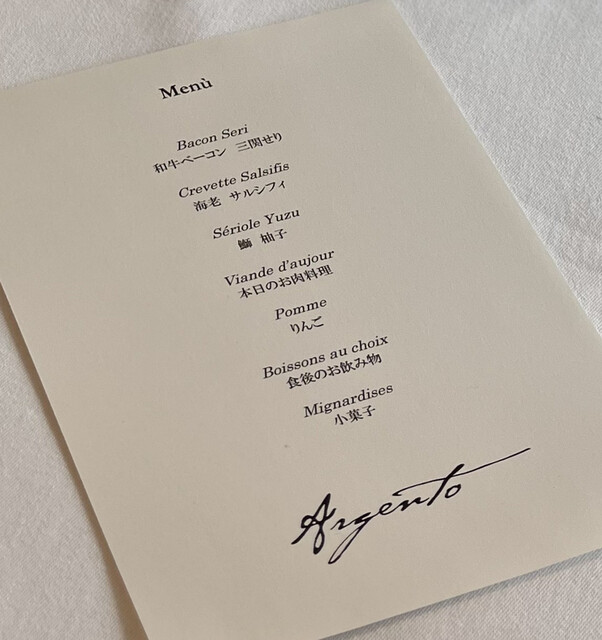 Menù
Bacon Seri
和牛ベーコン 三関せり
Crevette Salsifis
海老 サルシフィ
Sériole Yuzu
鰤 柚子
Viande d'aujour
本日のお肉料理
Pomme
りんご
Boissons au choix
食後のお飲み物
Mignardises
小菓子
Argento